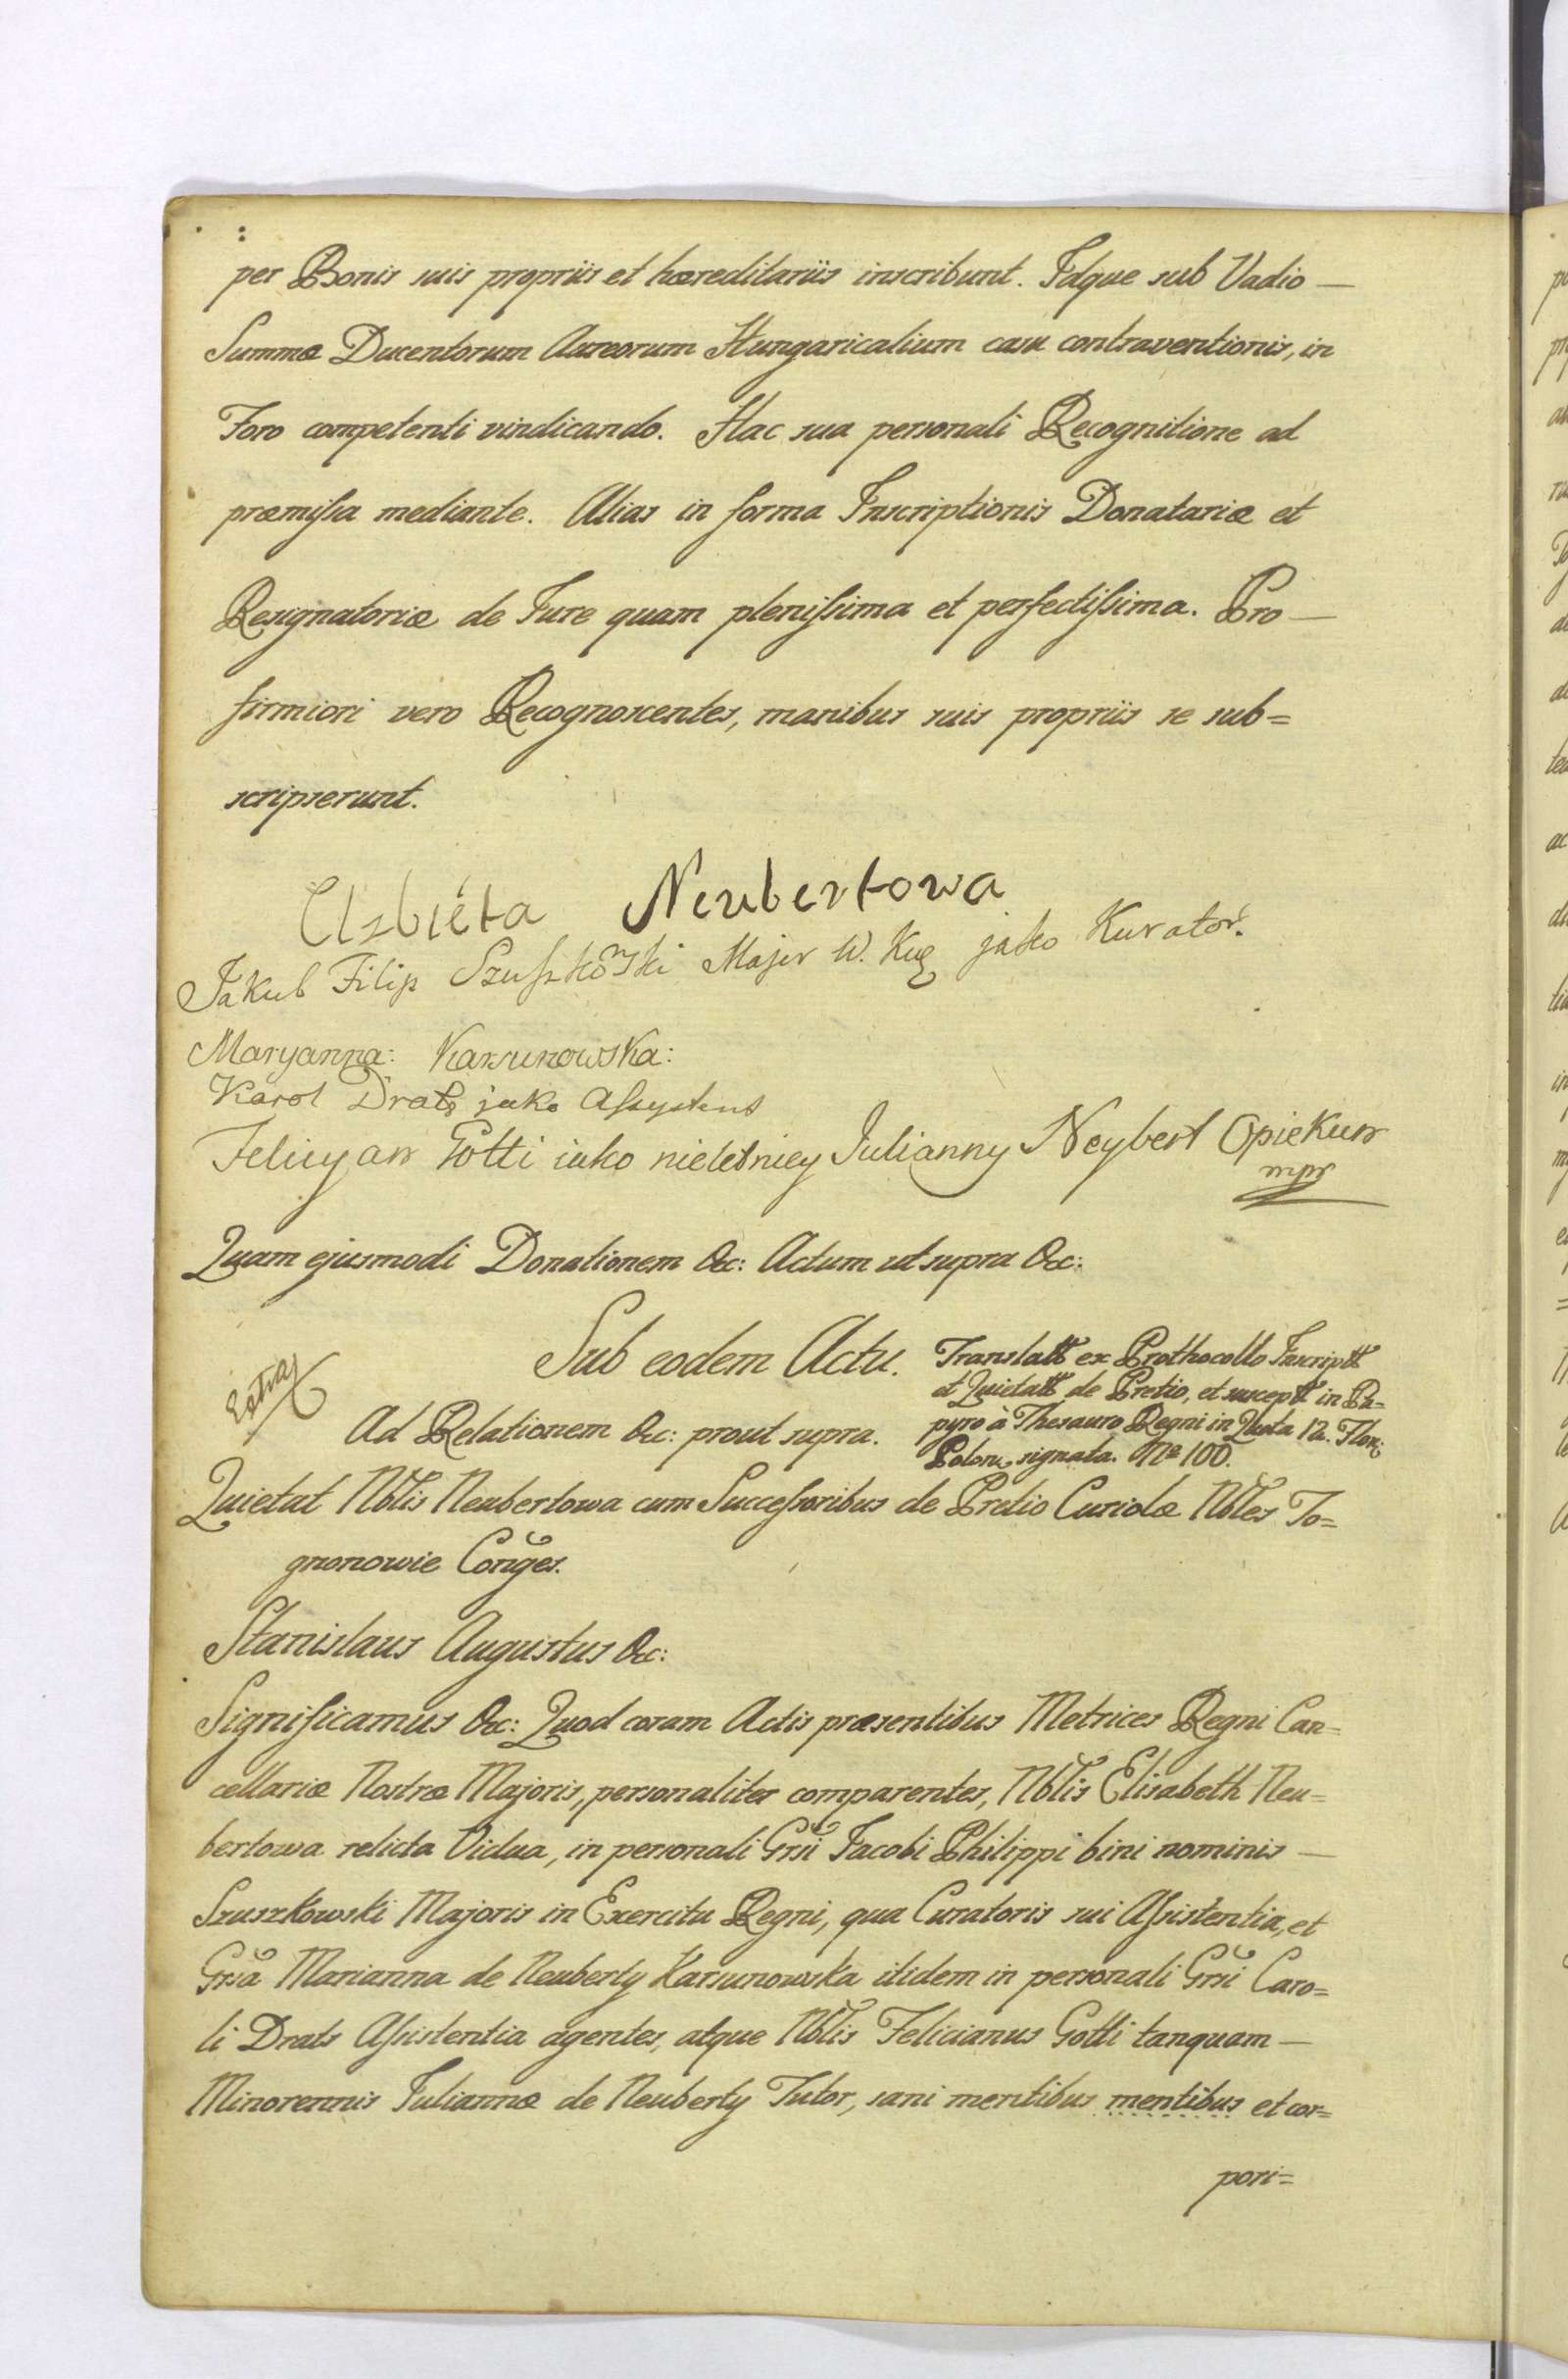 per Bonis suis propriis et hæreditariis inscribunt. Idque sub Vadio —
Summæ Ducentorum Aureorum Hungaricalium casu contraventionis, in
Foro competenti vindicando. Hac sua personali Recognitione ad
præmissa mediante. Alias in forma Inscriptionis Donatariæ et
Resignatoriæ de Jure quam plenissima et perfectissima. Pro —
firmiori vero Recognoscentes, manibus suis propriis se sub=
scripserunt.
Elzbiéta Neubertowa
Jakub Filip Szuszkowski Major W. Kor jako Kurator.
Maryanna: Karsunowska:
Karol Drats jako Assystent
Felicyan Gotti iako nieletniey Julianny Neybert Opiekun
mpr
Quam ejusmodi Donationem &c: Actum ut supra &c:
Sub eodem Actu.
Extrad
Ad Relationem &c: prout supra.
Translatt ex Prothocollo Inscriptt
et Quietatt de Pretio, et susceptt in Pa=
pyro à Thesauro Regni in Quota 12. Flor:
Polon. signata. No 100.
Quietat Nbtis Neubertowa cum Successoribus de Pretio Curiolæ Nbles To=
gnonowie Conges.
Stanislaus Augustus &c:
Significamus &c: Quod coram Actis præsentibus Metrices Regni Can=
cellariæ Nostræ Majoris, personaliter comparentes, Nbtis Elisabeth Neu=
bertowa relicta Vidua, in personali Grsi Jacobi Philippi bini nominis —
Szuszkowski Majoris in Exercitu Regni, qua Curatoris sui Assistentia, et
Grsa Marianna de Neuberty Karsunowska itidem in personali Grsi Caro=
li Drats Assistentia agentes, atque Nbtis Felicianus Gotti tanquam —
Minorennis Juliannæ de Neuberty Tutor, sani mentibus mentibus et cor=
pori=